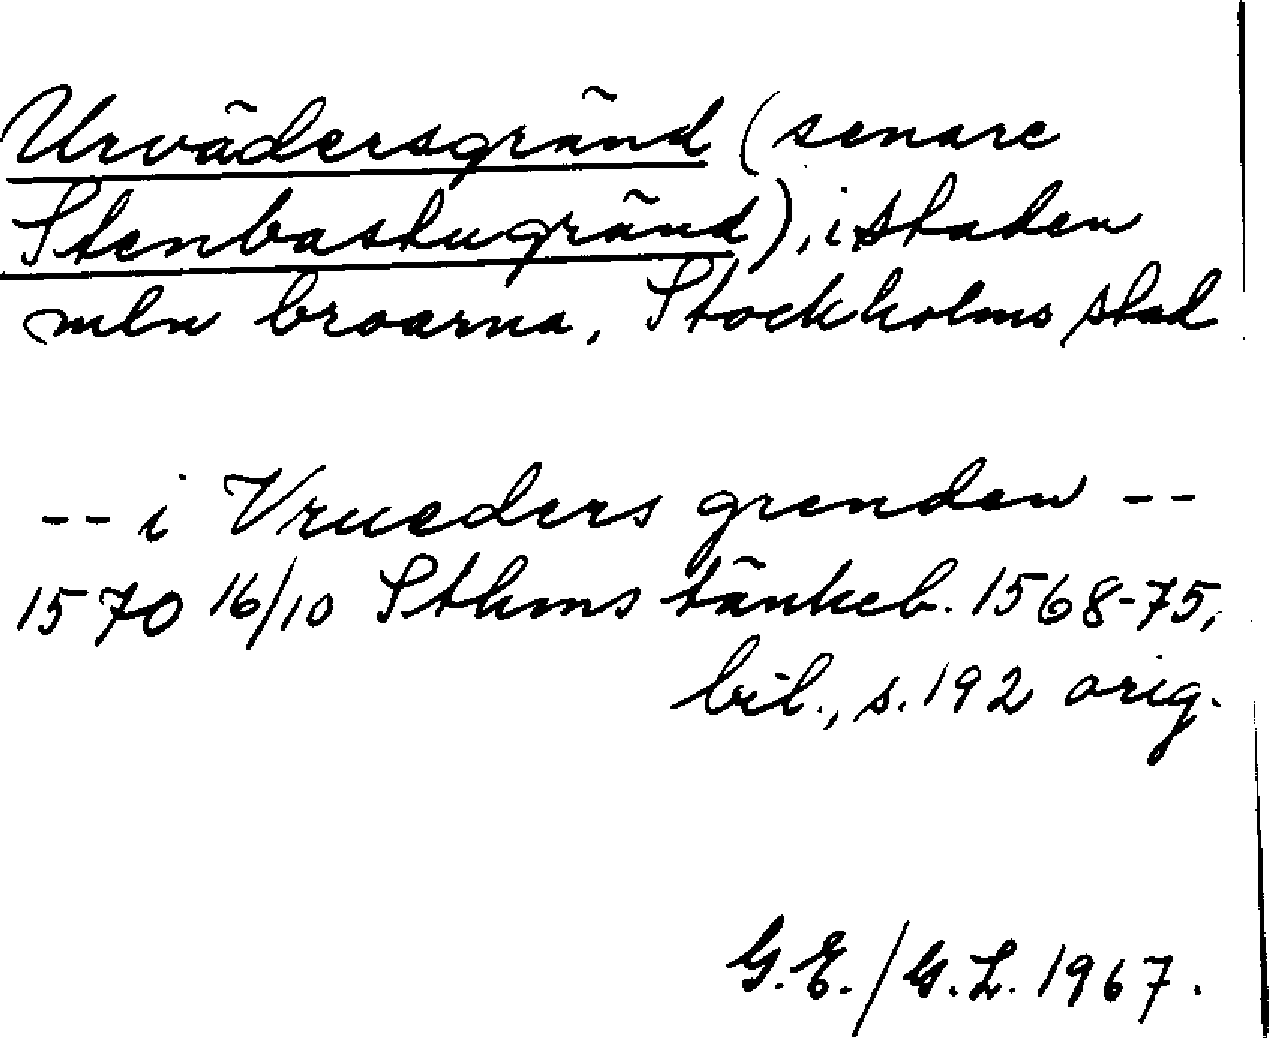 Urvädersgränd (senare
Stenbastugränd), i staden
mln broarna, Stockholms stad
-- i Vrueders grenden --
1570 16/10 Sthms tänkeb. 1568-75,
bil., s. 192 orig.
G.E./G.L. 1967.